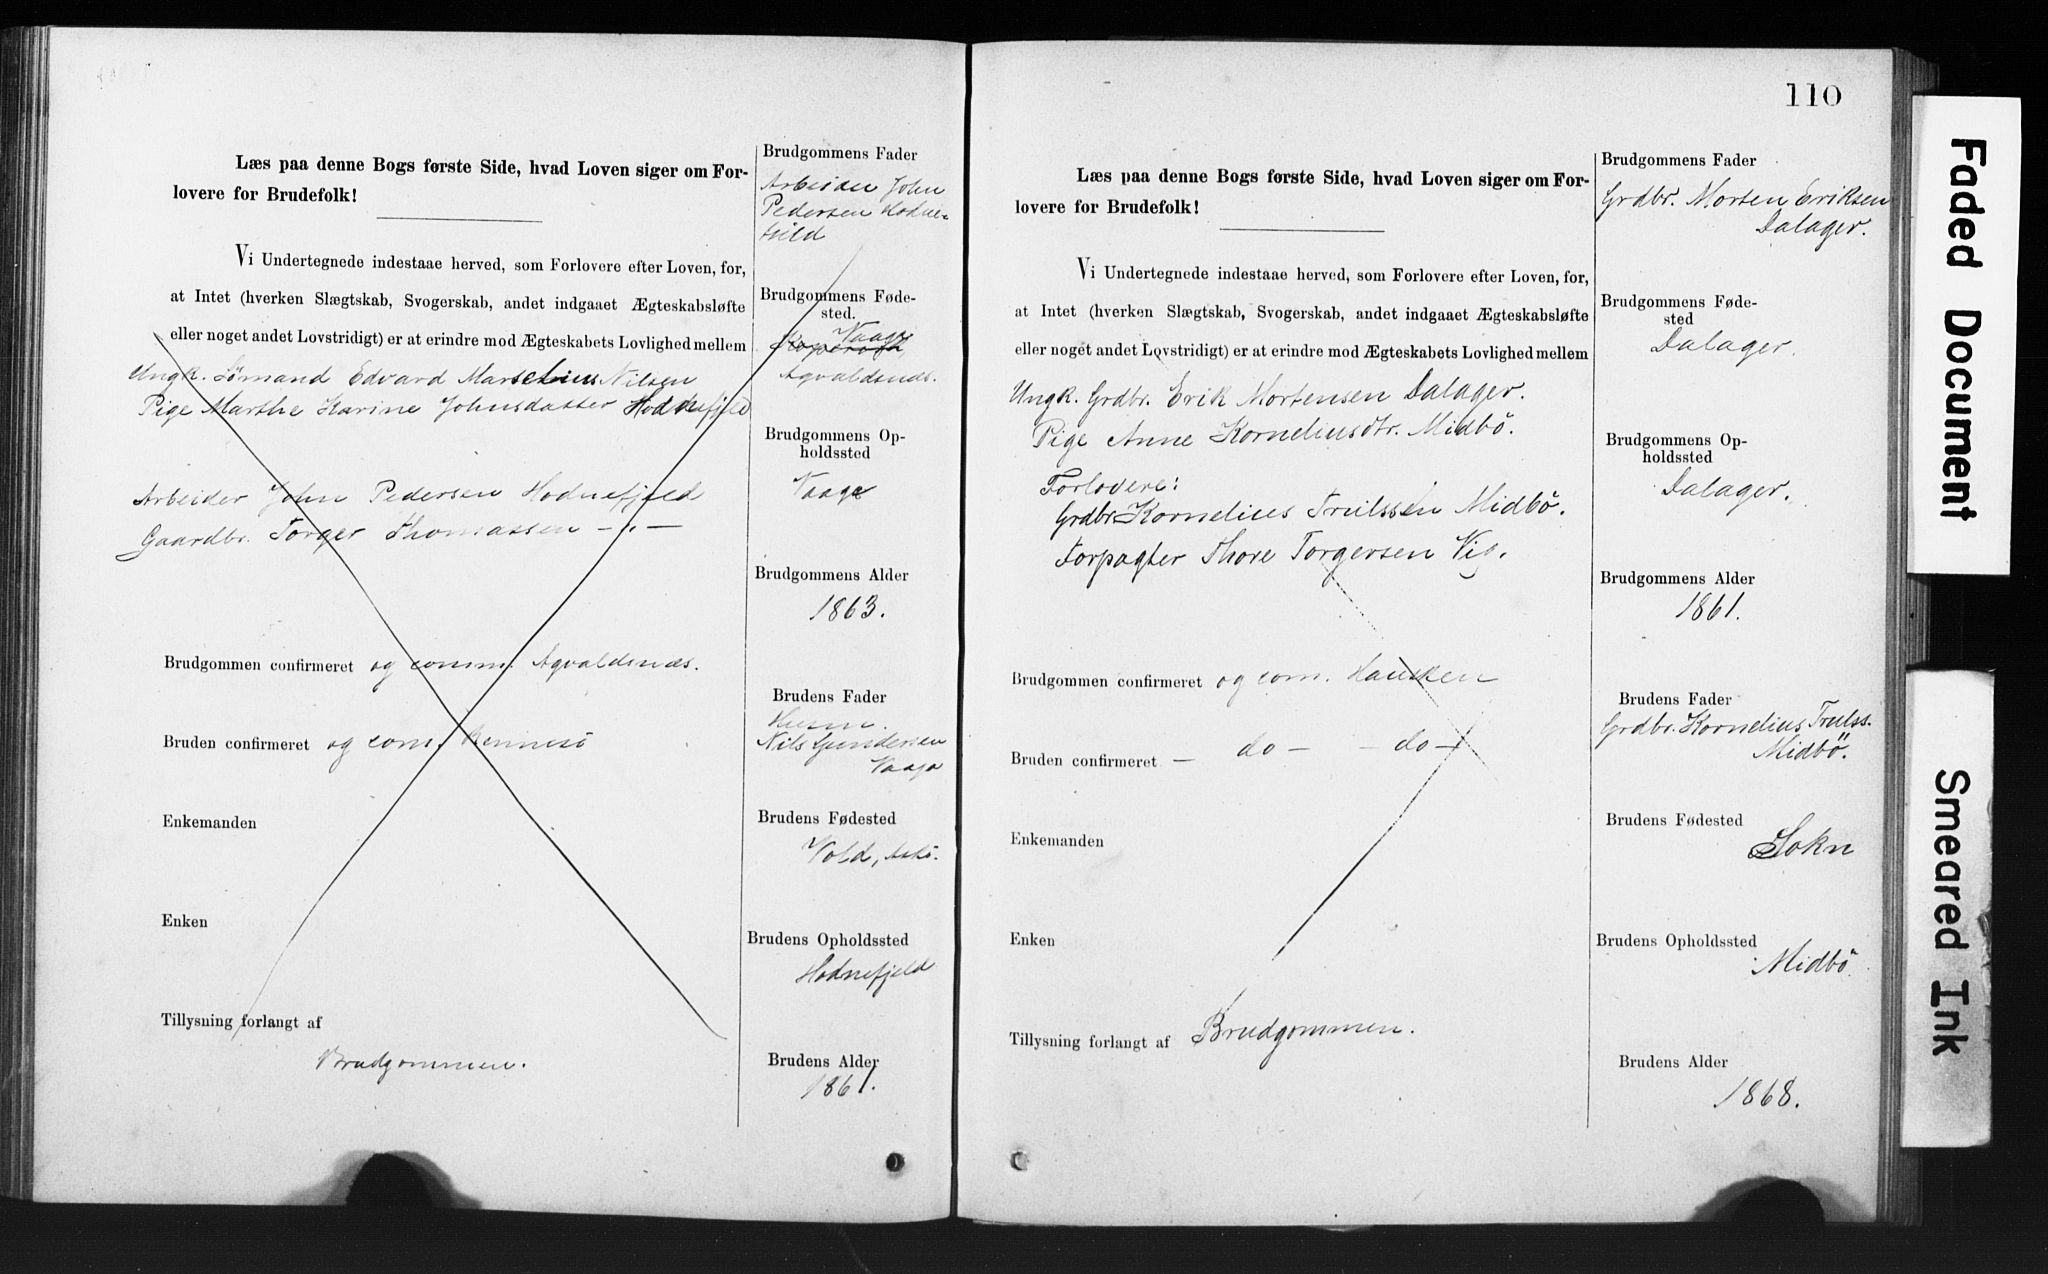 Læs paa denne Bogs første Side, hvad Loven siger om For-
lovere for Brudefolk!
Vi Undertegnede indestaae herved, som Forlovere efter Loven, for,
at Intet (hverken Slægtskab, Svogerskab, andet indgaaet Ægteskabsløfte
eller noget andet Lovstridigt) er at erindre mod Ægteskabets Lovlighed mellem
Ungk. Sömand Edvard Marselius Nilsen
Pige Marthe Karine Johnsdatter Hodnefjeld
Arbeider John Pedersen Hodnefjeld
Gaardbr. Torger Thomassen -"-
Brudgommen confirmeret og comm. Agvaldsnæs.
Bruden confirmeret og com. Rennesö
Enkemanden
Enken
Tillysning forlangt af
Brudgommen.
Brudgommens Fader
Arbeider John
Pedersen Hodne-
Brudgommens Føde-
sted.
Vaage
Agvaldsnæs.
Brudgommens Op-
holdssted
Vaage
Brudgommens Alder
1863.
Brudens Fader
Husm.
Nils Gundersen
Vaage
Brudens Fødested
Vold, Askö.
Brudens Opholdssted
Hodnefjeld
Brudens Alder
1861.
110
Læs paa denne Bogs første Side, hvad Loven siger om For-
lovere for Brudefolk!
Vi Undertegnede indestaae herved, som Forlovere efter Loven, for,
at Intet (hverken Slægtskab, Svogerskab, andet indgaaet Ægteskabsløfte
eller noget andet Lovstridigt) er at erindre mod Ægteskabets Lovlighed mellem
Ungk. Grdbr. Erik Mortensen Dalager.
Pige Anne Korneliusdtr. Midbö.
Forlovere:
Grdbr. Kornelius Trulssen Midbö.
Forpagter Thore Torgersen Vig.
Brudgommen confirmeret og com. Hausken
Bruden confirmeret - do - - do -
Enkemanden
Enken
Tillysning forlangt af Brudgommen.
Brudgommens Fader
Grdbr. Morten Eriksen
Dalager.
Brudgommens Føde-
sted
Dalager.
Brudgommens Op-
holdssted
Dalager.
Brudgommens Alder
1861.
Brudens Fader
Grdbr. Kornelius Trulss.
Midbö.
Brudens Fødested
Sokn
Brudens Opholdssted
Midbö.
Brudens Alder
1868.
Faded Document
Smeared Ink